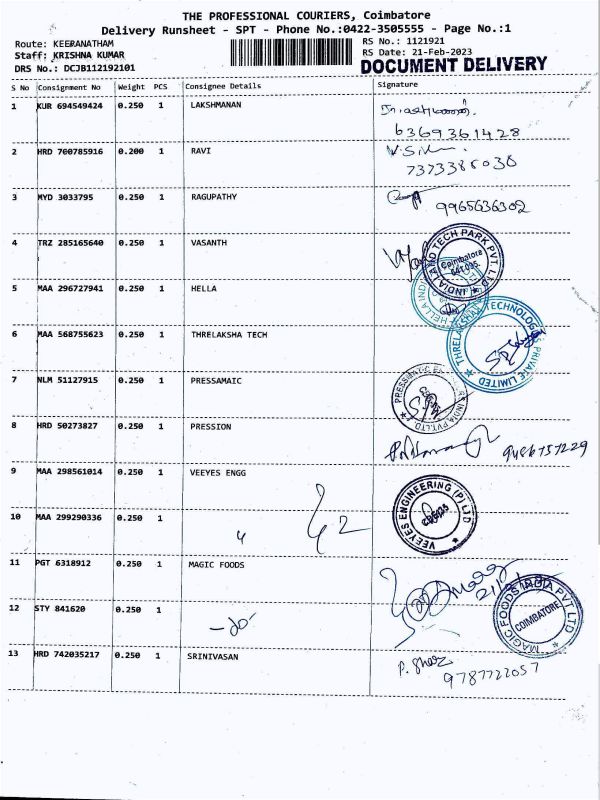 THE PROFESSIONAL COURIERS, Coimbatore
Delivery Runsheet - SPT - Phone No.:0422-3505555 - Page No.:1
Route: KEERANATHAM
Staff: KRISHNA KUMAR
DRS No.: DCJB112192101
RS No.: 1121921
RS Date: 21-Feb-2023
DOCUMENT DELIVERY
S No Consignment No Weight PCS Consignee Details Signature
1 KUR 694549424 0.250 1 LAKSHMANAN
6369361428
2 HRD 700785916 0.200 1 RAVI
7373386036
3 MYD 3033795 0.250 1 RAGUPATHY
9965636302
4 TRZ 285165640 0.250 1 VASANTH
INDIA LAND TECH PARK PVT. LTD
Coimbatore
641 035.
5 MAA 296727941 0.250 1 HELLA
HELLA INDIA
6 MAA 568755623 0.250 1 THRELAKSHA TECH
THRELAKSHAA TECHNOLOGIES PRIVATE LIMITED
7 NLM 51127915 0.250 1 PRESSAMAIC
INDIA PVT.LTD.
8 HRD 50273827 0.250 1 PRESSION
9486157229
9 MAA 298561014 0.250 1 VEEYES ENGG
VEEYES ENGINEERING (P) LTD
CBE-35
10 MAA 299290336 0.250 1
11 PGT 6318912 0.250 1 MAGIC FOODS
MAGIC FOODS INDIA PVT LTD
COIMBATORE
12 STY 841620 0.250 1
13 HRD 742035217 0.250 1 SRINIVASAN
9787722057